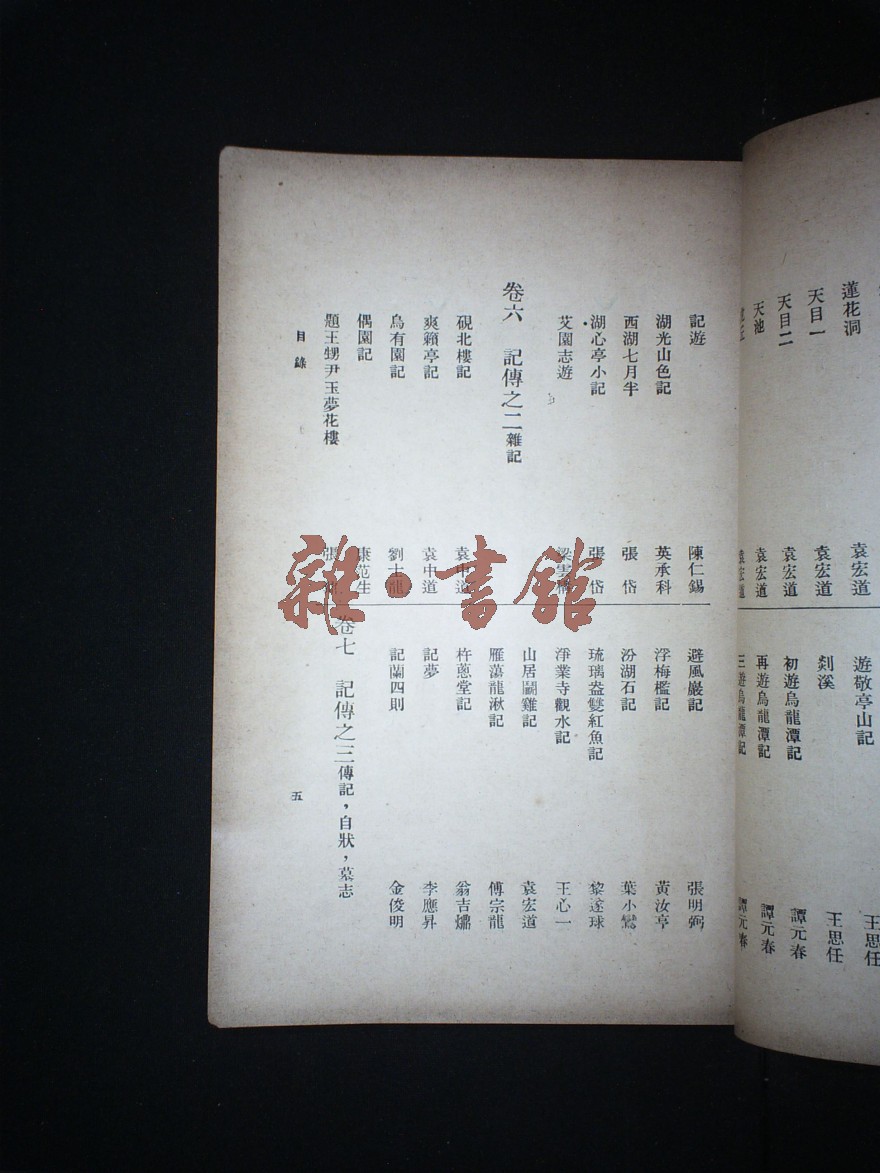 蓮花洞 袁宏道
天目一 袁宏道
天目二 袁宏道
天池 袁宏道
袁宏道
王思任
遊敬亭山記 王思任
剡溪
初遊烏龍潭記 譚元春
再遊烏龍潭記 譚元春
三遊烏龍潭記 譚元春
記遊 陳仁錫
湖光山色記 英承科
西湖七月半 張岱
湖心亭小記 張岱
艾園志遊
卷六 記傳之二雜記
硯北樓記 袁中道
爽籟亭記 袁中道
烏有園記 劉士龍
偶園記 康范生
題王甥尹玉夢花樓 張
避風巖記 張明弼
浮梅檻記 黃汝亨
汾湖石記 葉小鸞
琉璃盎雙紅魚記 黎遂球
淨業寺觀水記 王心一
山居鬭雞記 袁宏道
雁蕩龍湫記 傅宗龍
杵蒽堂記 翁吉㷍
記夢 李應昇
記蘭四則 金俊明
卷七 記傳之三傳記，自狀，墓志
目錄
五
雜·書館